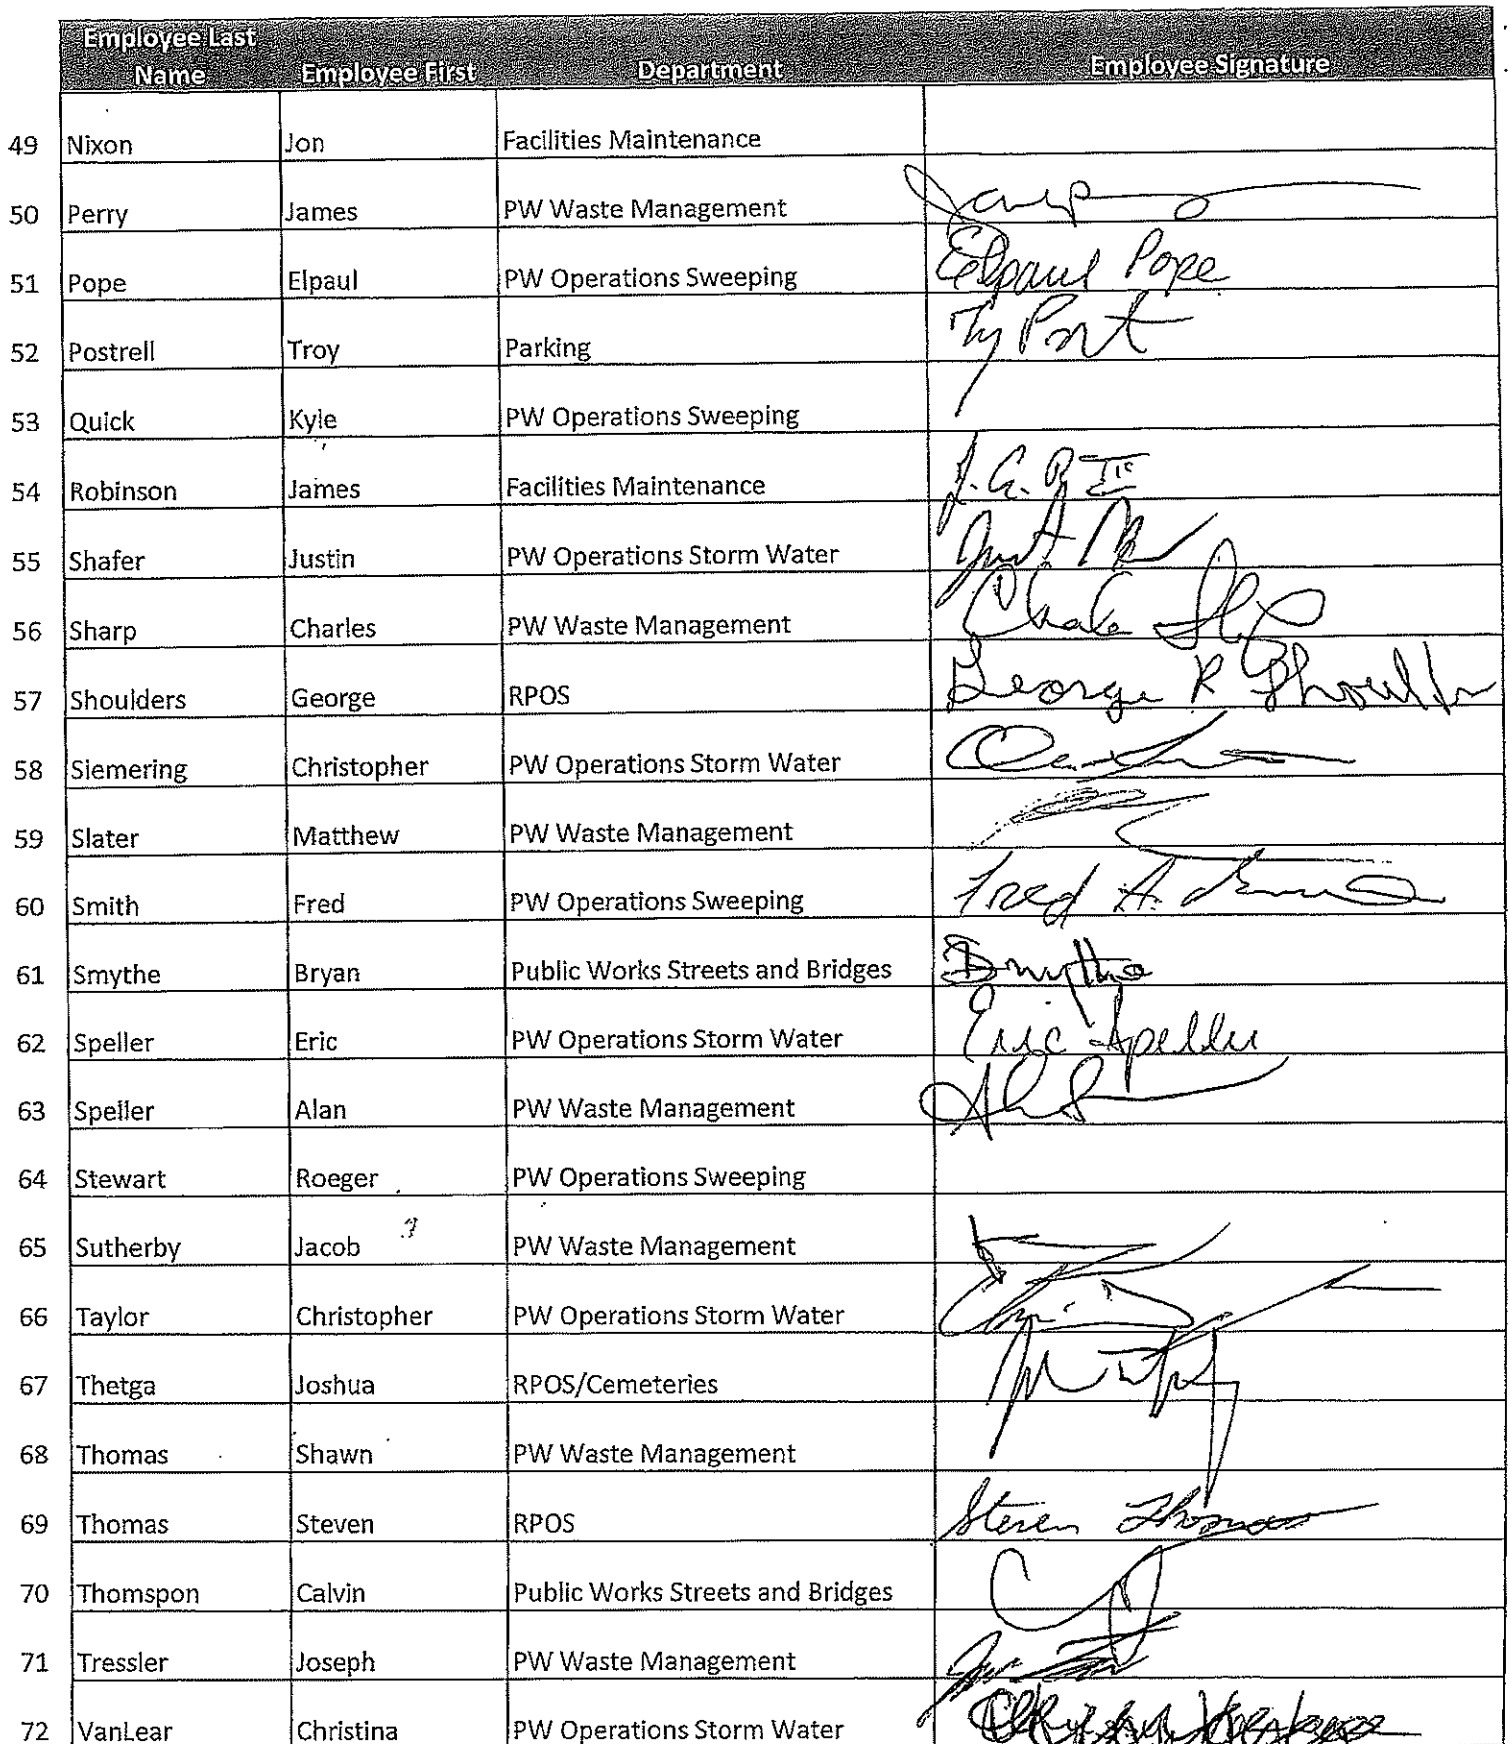 Employee Last
Name Employee First Department Employee Signature
49 Nixon Jon Facilities Maintenance
50 Perry James PW Waste Management
51 Pope Elpaul PW Operations Sweeping Elpaul Pope
52 Postrell Troy Parking
53 Quick Kyle PW Operations Sweeping
54 Robinson James Facilities Maintenance
55 Shafer Justin PW Operations Storm Water
56 Sharp Charles PW Waste Management
57 Shoulders George RPOS George R
58 Siemering Christopher PW Operations Storm Water
59 Slater Matthew PW Waste Management
60 Smith Fred PW Operations Sweeping Fred A.
61 Smythe Bryan Public Works Streets and Bridges
62 Speller Eric PW Operations Storm Water Eric Speller
63 Speller Alan PW Waste Management
64 Stewart Roeger PW Operations Sweeping
65 Sutherby Jacob PW Waste Management
66 Taylor Christopher PW Operations Storm Water
67 Thetga Joshua RPOS/Cemeteries
68 Thomas Shawn PW Waste Management
69 Thomas Steven RPOS Steven Thomas
70 Thomspon Calvin Public Works Streets and Bridges
71 Tressler Joseph PW Waste Management
72 VanLear Christina PW Operations Storm Water